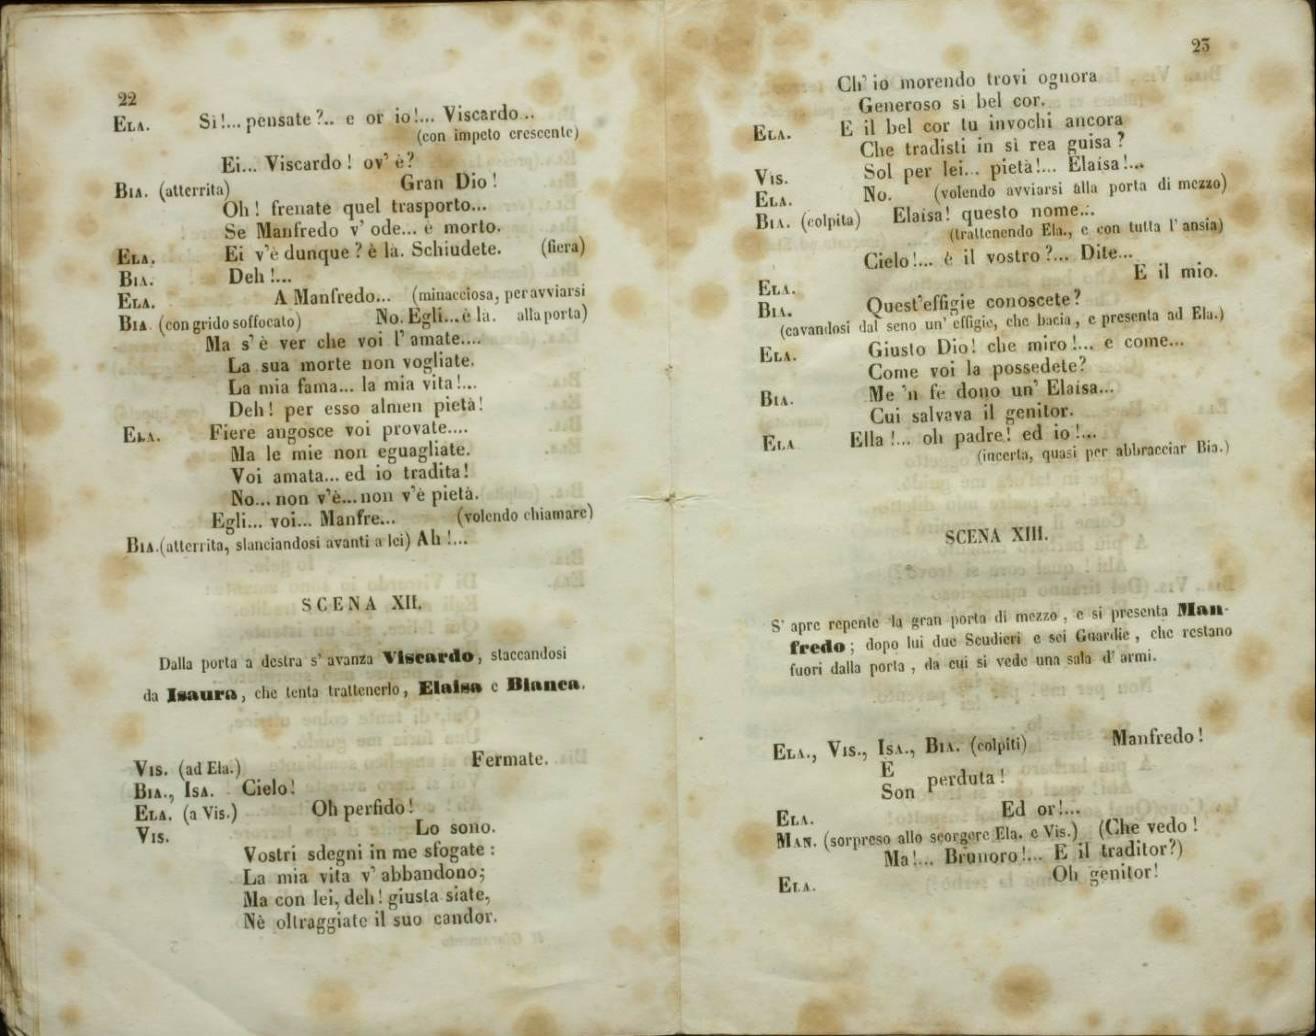 22
ELA. Sì!... pensate?.. e or io!... Viscardo..
(con impeto crescente)
Ei... Viscardo! ov' è?
BIA. (atterrita) Gran Dio!
Oh! frenate quel trasporto...
Se Manfredo v' ode... è morto.
ELA. Ei v'è dunque? è là. Schiudete. (fiera)
BIA. Deh!...
ELA. A Manfredo... (minacciosa, per avviarsi
BIA. (con grido soffocato) No. Egli... è là. alla porta)
Ma s' è ver che voi l' amate....
La sua morte non vogliate.
La mia fama... la mia vita!...
Deh! per esso almen pietà!
ELA. Fiere angosce voi provate....
Ma le mie non eguagliate.
Voi amata... ed io tradita!
No... non v'è... non v'è pietà.
Egli... voi... Manfre... (volendo chiamare)
BIA. (atterrita, slanciandosi avanti a lei) Ah!...
SCENA XII.
Dalla porta a destra s' avanza Viscardo, staccandosi
da Isaura, che tenta trattenerlo, Elaisa e Bianca.
VIS. (ad Ela.) Fermate.
BIA., ISA. Cielo!
ELA. (a Vis.) Oh perfido!
VIS. Lo sono.
Vostri sdegni in me sfogate:
La mia vita v' abbandono;
Ma con lei, deh! giusta siate,
Nè oltraggiate il suo candor.
2
23
Ch' io morendo trovi ognora
Generoso sì bel cor.
ELA. E il bel cor tu invochi ancora
Che tradisti in sì rea guisa?
VIS. Sol per lei... pietà!... Elaisa!...
ELA. No. (volendo avviarsi alla porta di mezzo)
BIA. (colpita) Elaisa! questo nome...
(trattenendo Ela., e con tutta l' ansia)
Cielo!... è il vostro?... Dite...
ELA. E il mio.
BIA. Quest'effigie conoscete?
(cavandosi dal seno un' effigie, che bacia, e presenta ad Ela.)
ELA. Giusto Dio! che miro!... e come...
Come voi la possedete?
BIA. Me 'n fè dono un' Elaisa...
Cui salvava il genitor.
ELA Ella!... oh padre! ed io!...
(incerta, quasi per abbracciar Bia.)
SCENA XIII.
S' apre repente la gran porta di mezzo, e si presenta Man-
fredo; dopo lui due Scudieri e sei Guardie, che restano
fuori dalla porta, da cui si vede una sala d' armi.
ELA., VIS., ISA., BIA. (colpiti) Manfredo!
E
Son perduta!
ELA. Ed or!...
MAN. (sorpreso allo scorgere Ela. e Vis.) (Che vedo!
Ma!... Brunoro!... E il traditor?)
ELA. Oh genitor!